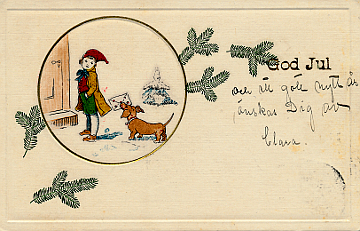 God Jul
och ett gott nytt år
önskas Dig av
Clara.